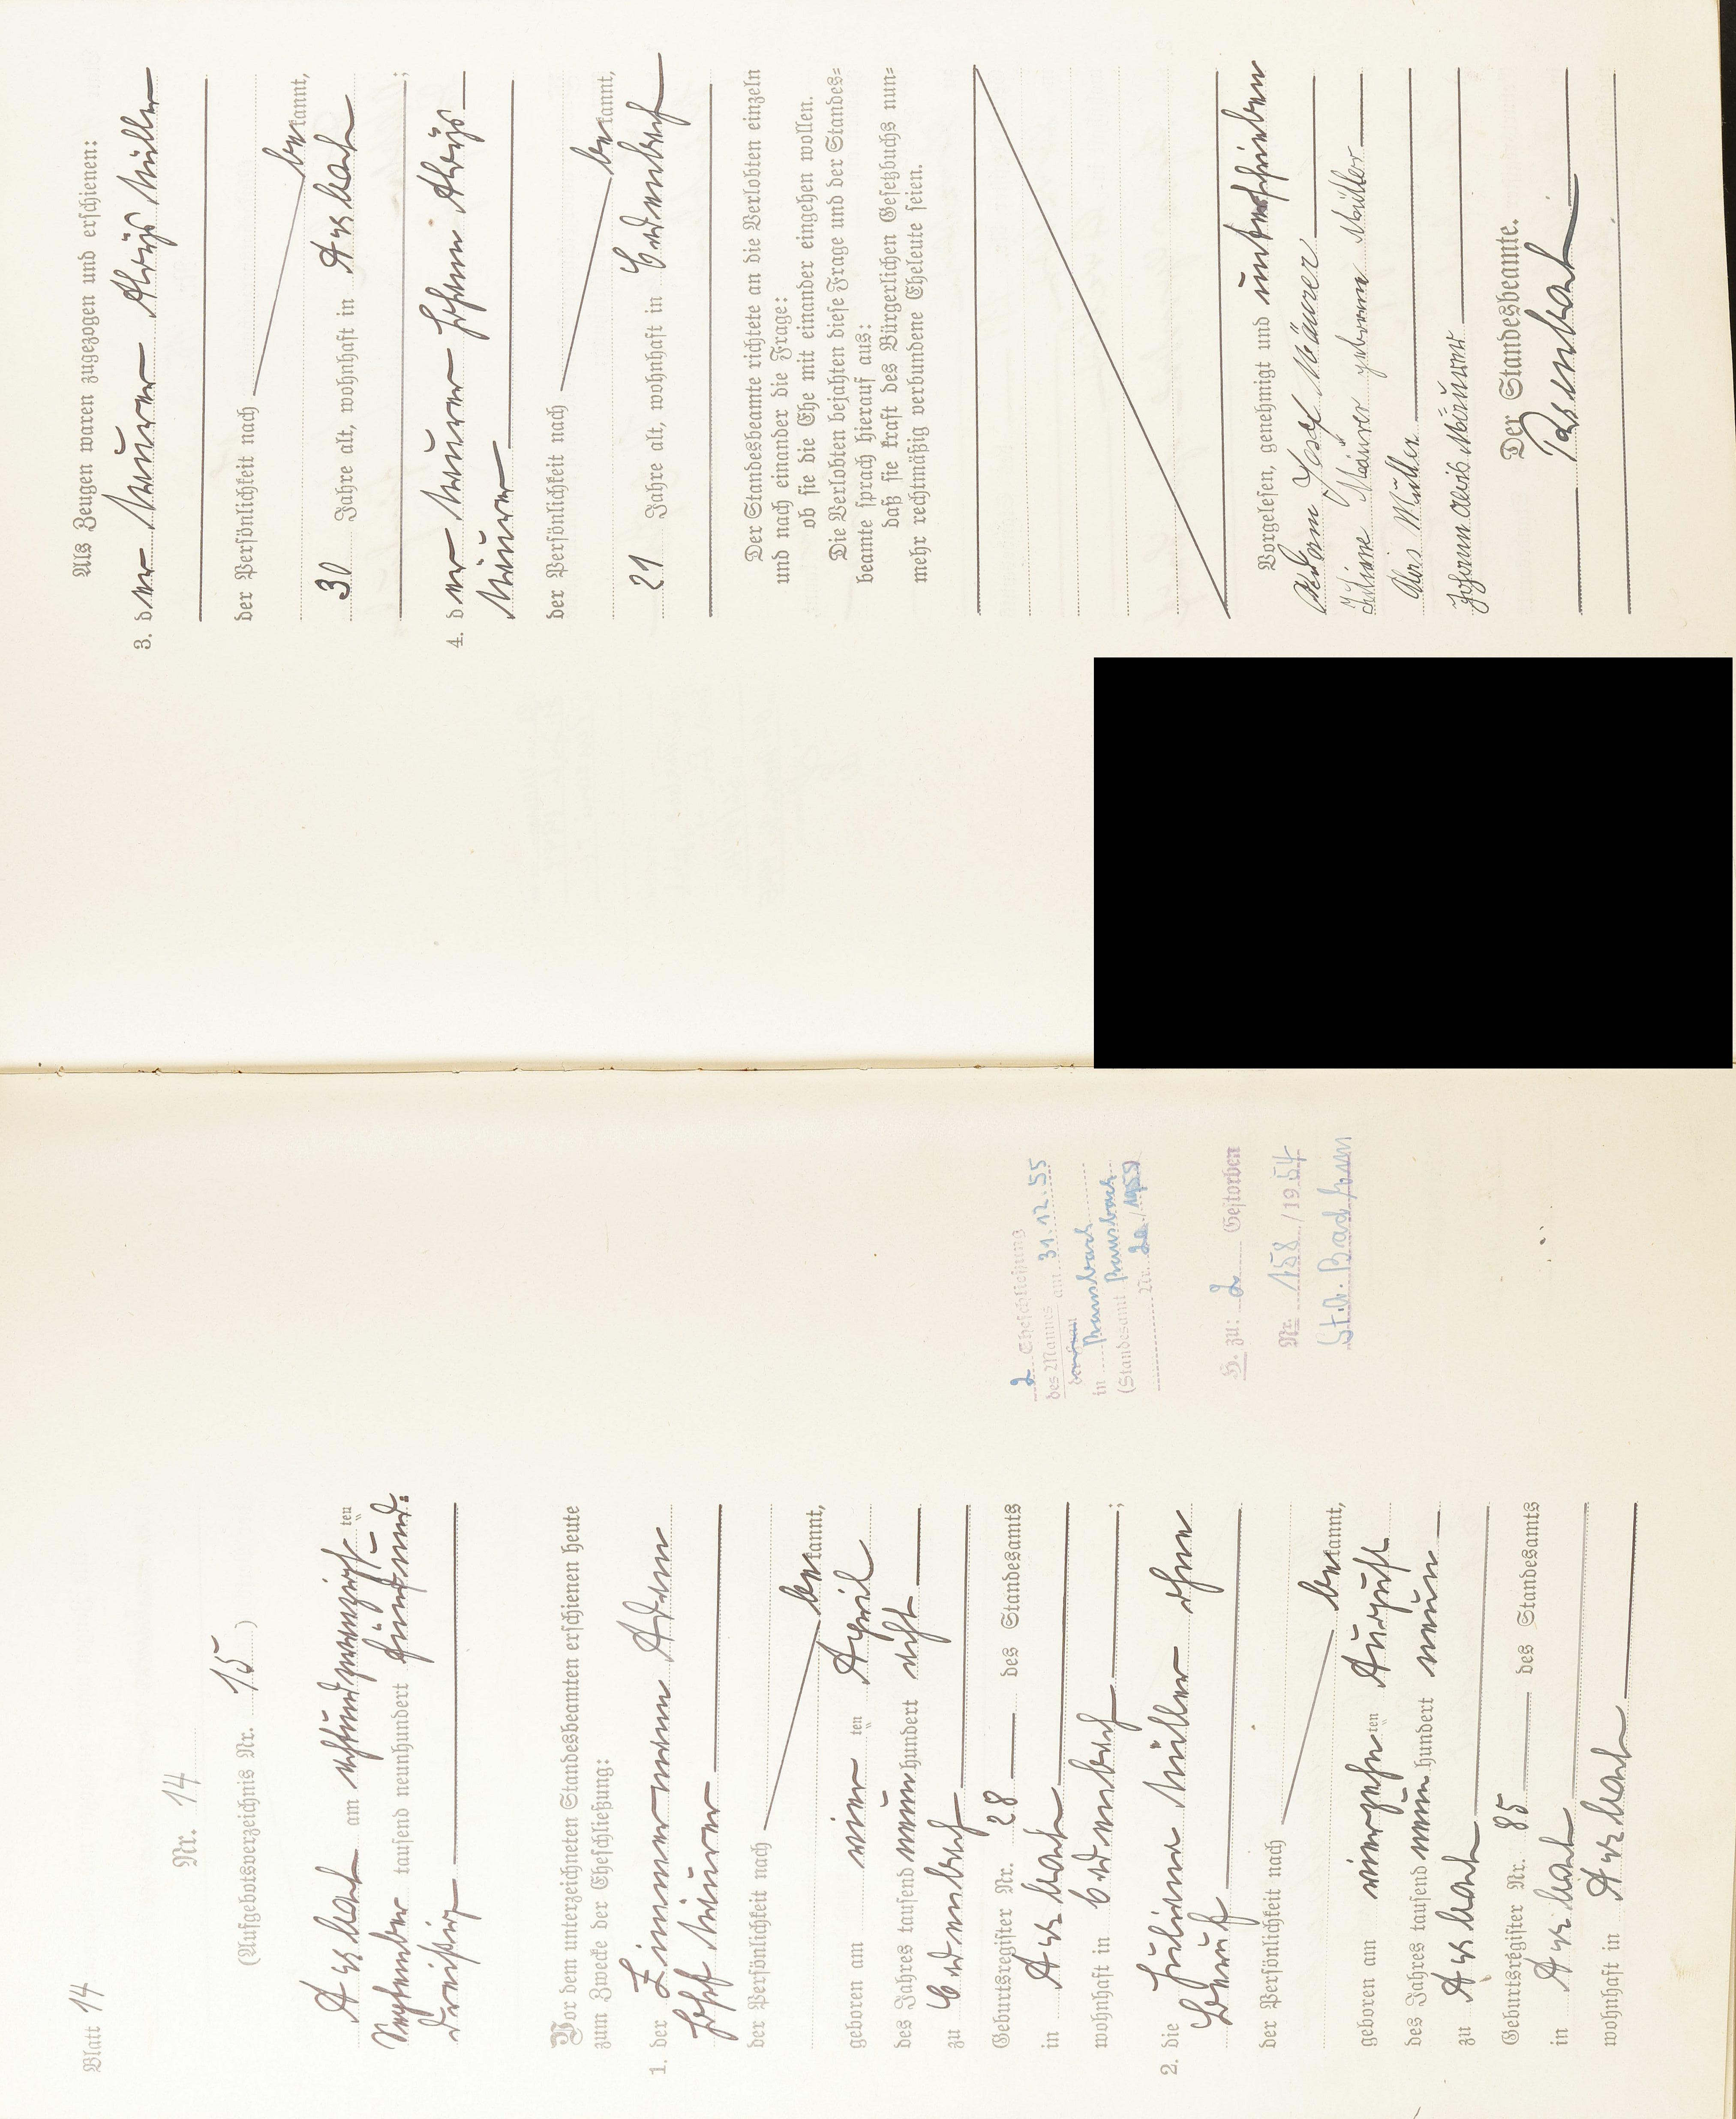 Blatt 14
Nr. 14
(Aufgebotsverzeichnis Nr. 15)
Asbach am achtundzwanzigsten
September tausend neunhundert fünfund-
dreißig
Vor dem unterzeichneten Standesbeamten erschienen heute
zum Zwecke der Eheschließung:
1. der Zimmermann Adam
Josef Mäurer
der Persönlichkeit nach
bekannt,
geboren am vierten April
des Jahres tausend neunhundert acht
zu
Geburtsregister Nr. 28 des Standesamts
in Asbach
wohnhaft in ;
2. die Juliane Müller ohne
Beruf
der Persönlichkeit nach
bekannt,
geboren am vierzehnten August
des Jahres tausend neunhundert neun
zu Asbach
Geburtsregister Nr. 85 des Standesamts
in Asbach
wohnhaft in Asbach
2. Eheschließung
des Mannes am 31.12.55
der Frau
in Ransbach
(Standesamt Ransbach
Nr. 20/1955)
H. zu: 2 Gestorben
Nr. 158/1954
St.A. Bad
Als Zeugen waren zugezogen und erschienen:
3. der Maurer Aloys Müller
der Persönlichkeit nach
bekannt,
30 Jahre alt, wohnhaft in Asbach
;
4. der Maurer Johann Aloys
Mäurer
der Persönlichkeit nach
bekannt,
21 Jahre alt, wohnhaft in
Der Standesbeamte richtete an die Verlobten einzeln
und nach einander die Frage:
ob sie die Ehe mit einander eingehen wollen.
Die Verlobten bejahten diese Frage und der Standes-
beamte sprach hierauf aus:
daß sie kraft des Bürgerlichen Gesetzbuchs nun-
mehr rechtmäßig verbundene Eheleute seien.
Vorgelesen, genehmigt und unterschrieben
Adam Josef Mäurer
Juliane Mäurer geborene Müller
Alois Müller
Johann Alois Mäurer
Der Standesbeamte.